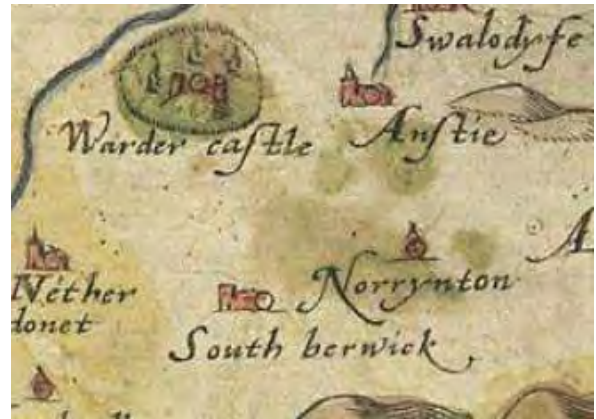 Swalodyfe
Warder castle
Anstie
Nether
donet
Norrynton
South berwick